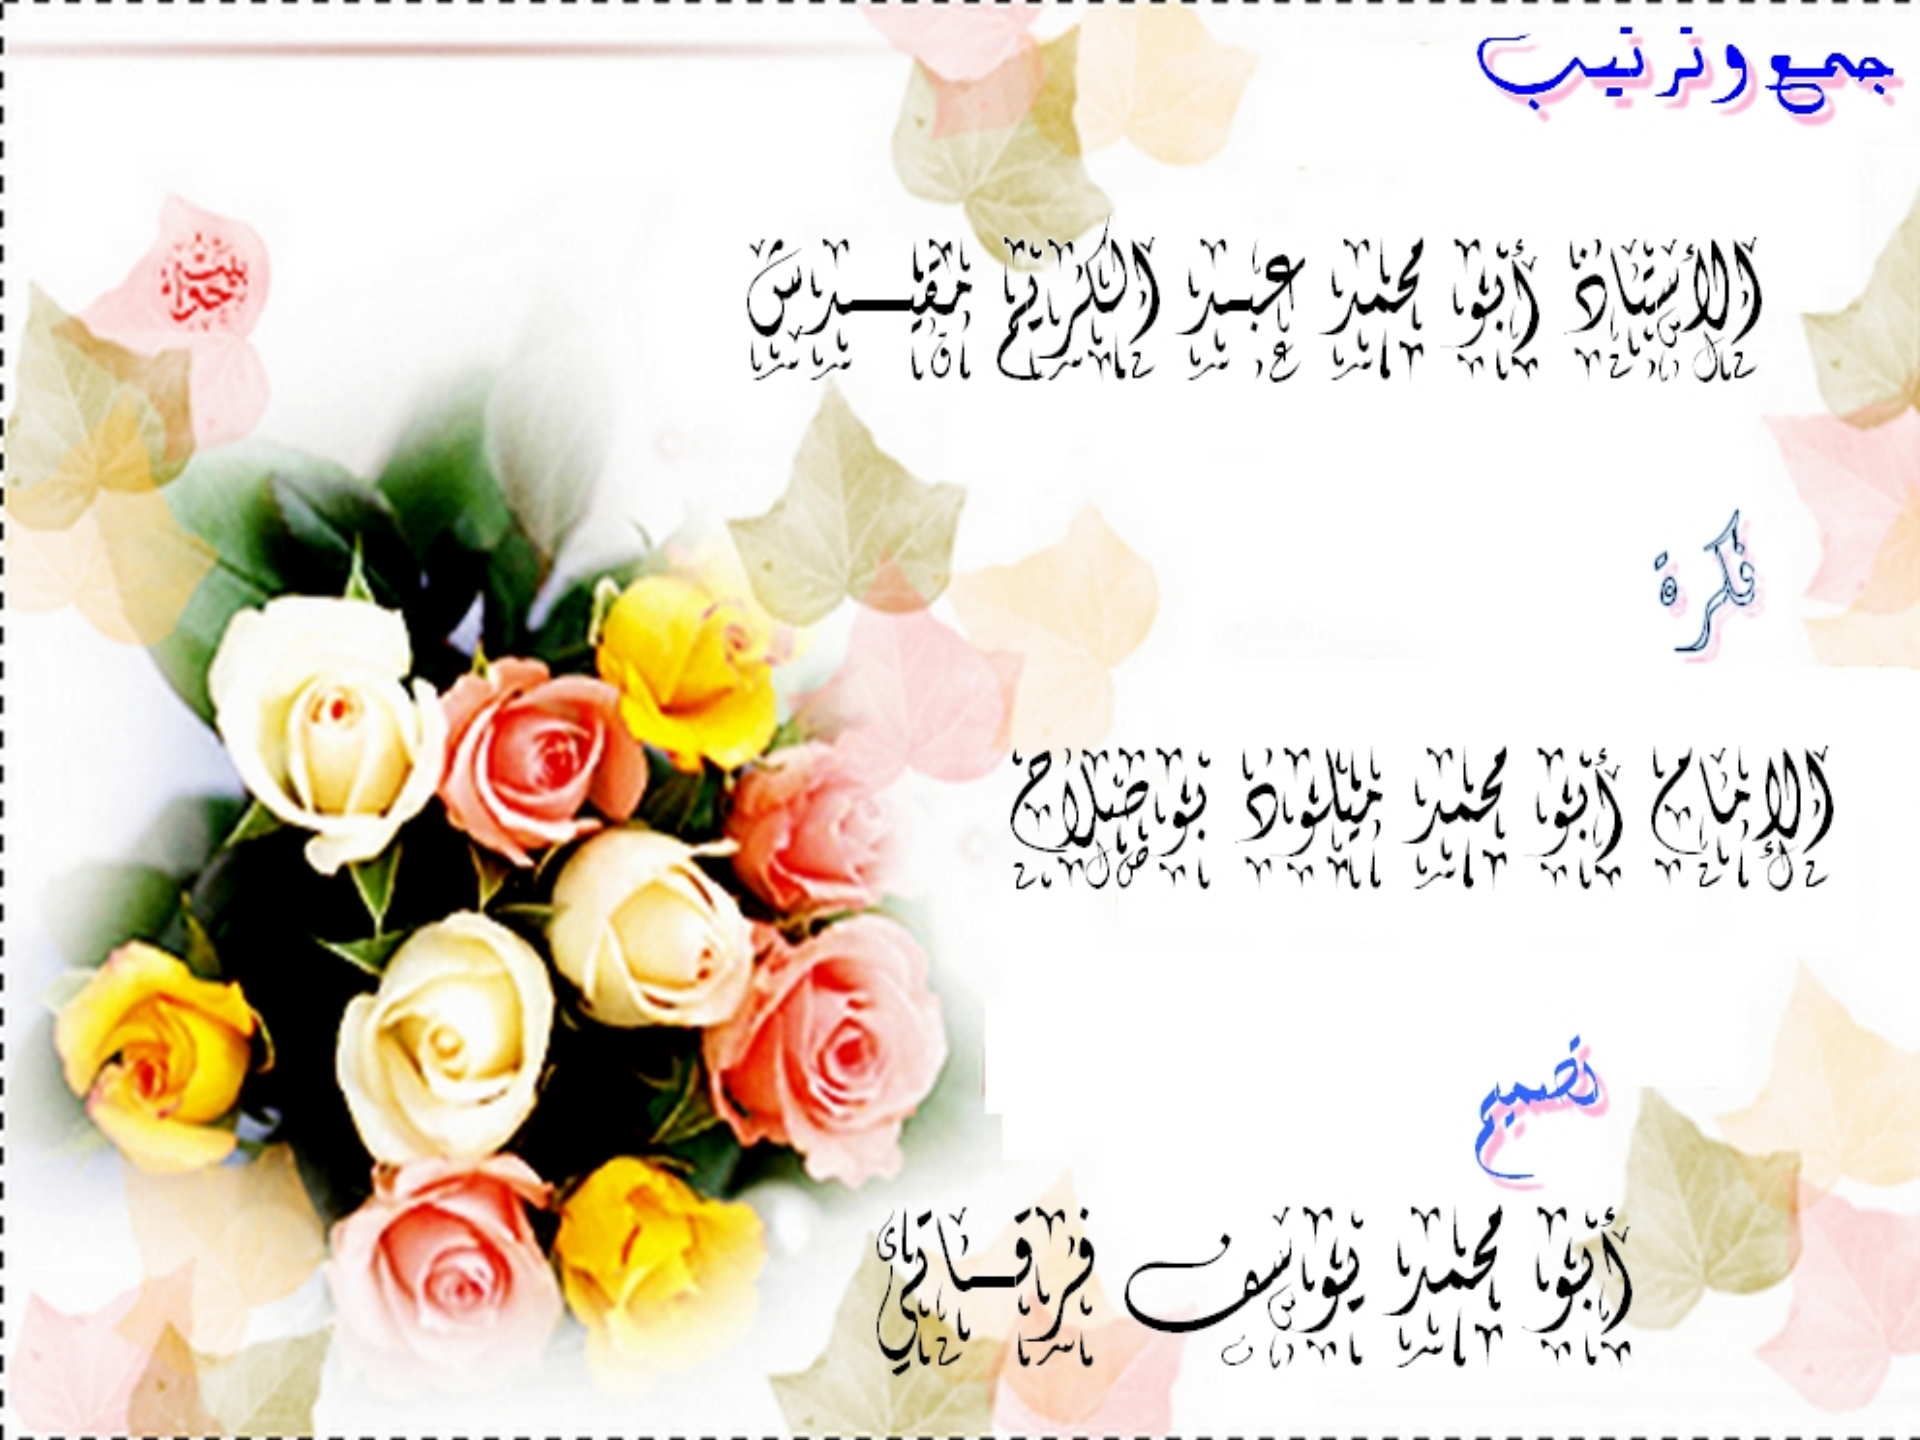 جمع وترتيب
الأستاذ أبو محمد عبد الكريم مقيدش
فكرة
الإمام أبو محمد ميلود بوصلاح
تصميم
أبو محمد يوسف فرقاني
بيت حواء